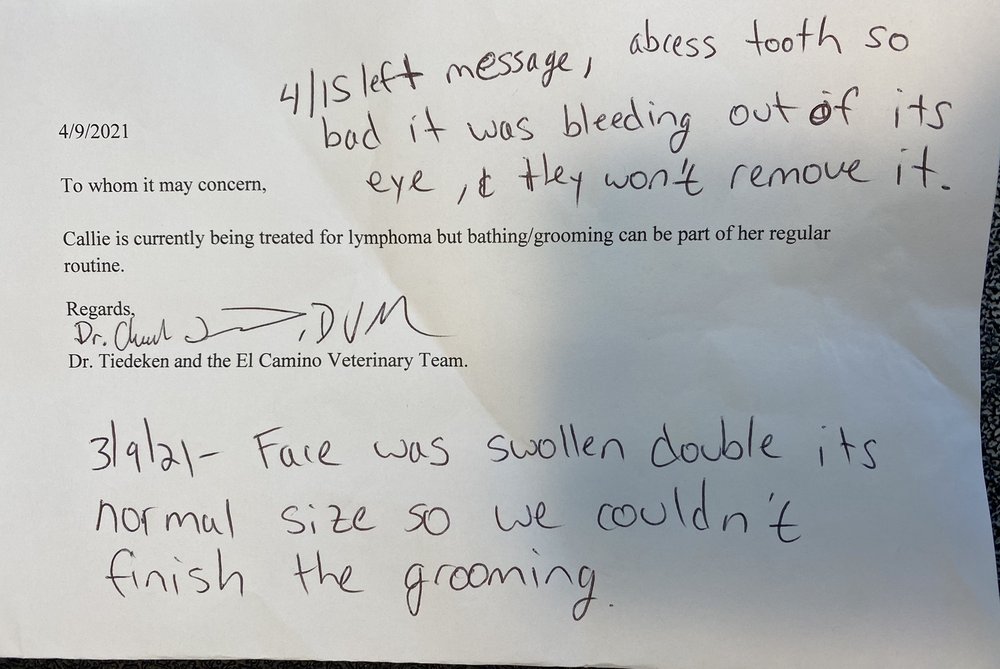 4/15 left message, abcess tooth so
bad it was bleeding out of its
eye, & they won't remove it.
4/9/2021
To whom it may concern,
Callie is currently being treated for lymphoma but bathing/grooming can be part of her regular
routine.
Regards,
Dr. , DVM
Dr. Tiedeken and the El Camino Veterinary Team.
3/9/21- Face was swollen double its
normal size so we couldn't
finish the grooming.